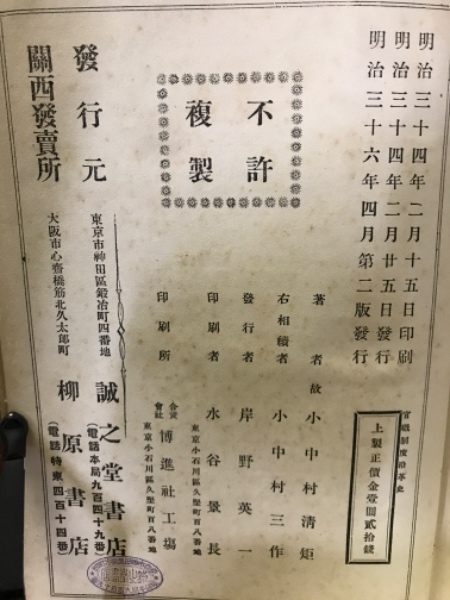 明治三十四年二月十五日印刷
明治三十四年二月廿五日發行
明治三十六年四月第二版發行
官職制度沿革史
上製正價金壹圓貳拾錢
不許
複製
著者故小中村清矩
右相續者小中村三作
發行者岸野英一
印刷者水谷景長
東京小石川區久堅町百八番地
印刷所合資會社博進社工塲
東京小石川區久堅町百八番地
發行元
東京市神田區鍛冶町四番地
誠之堂書店
(電話本局九百四十九番)
關西發賣所
大阪市心齋橋筋北久太郎町
柳原書店
(電話特東四百十四番)